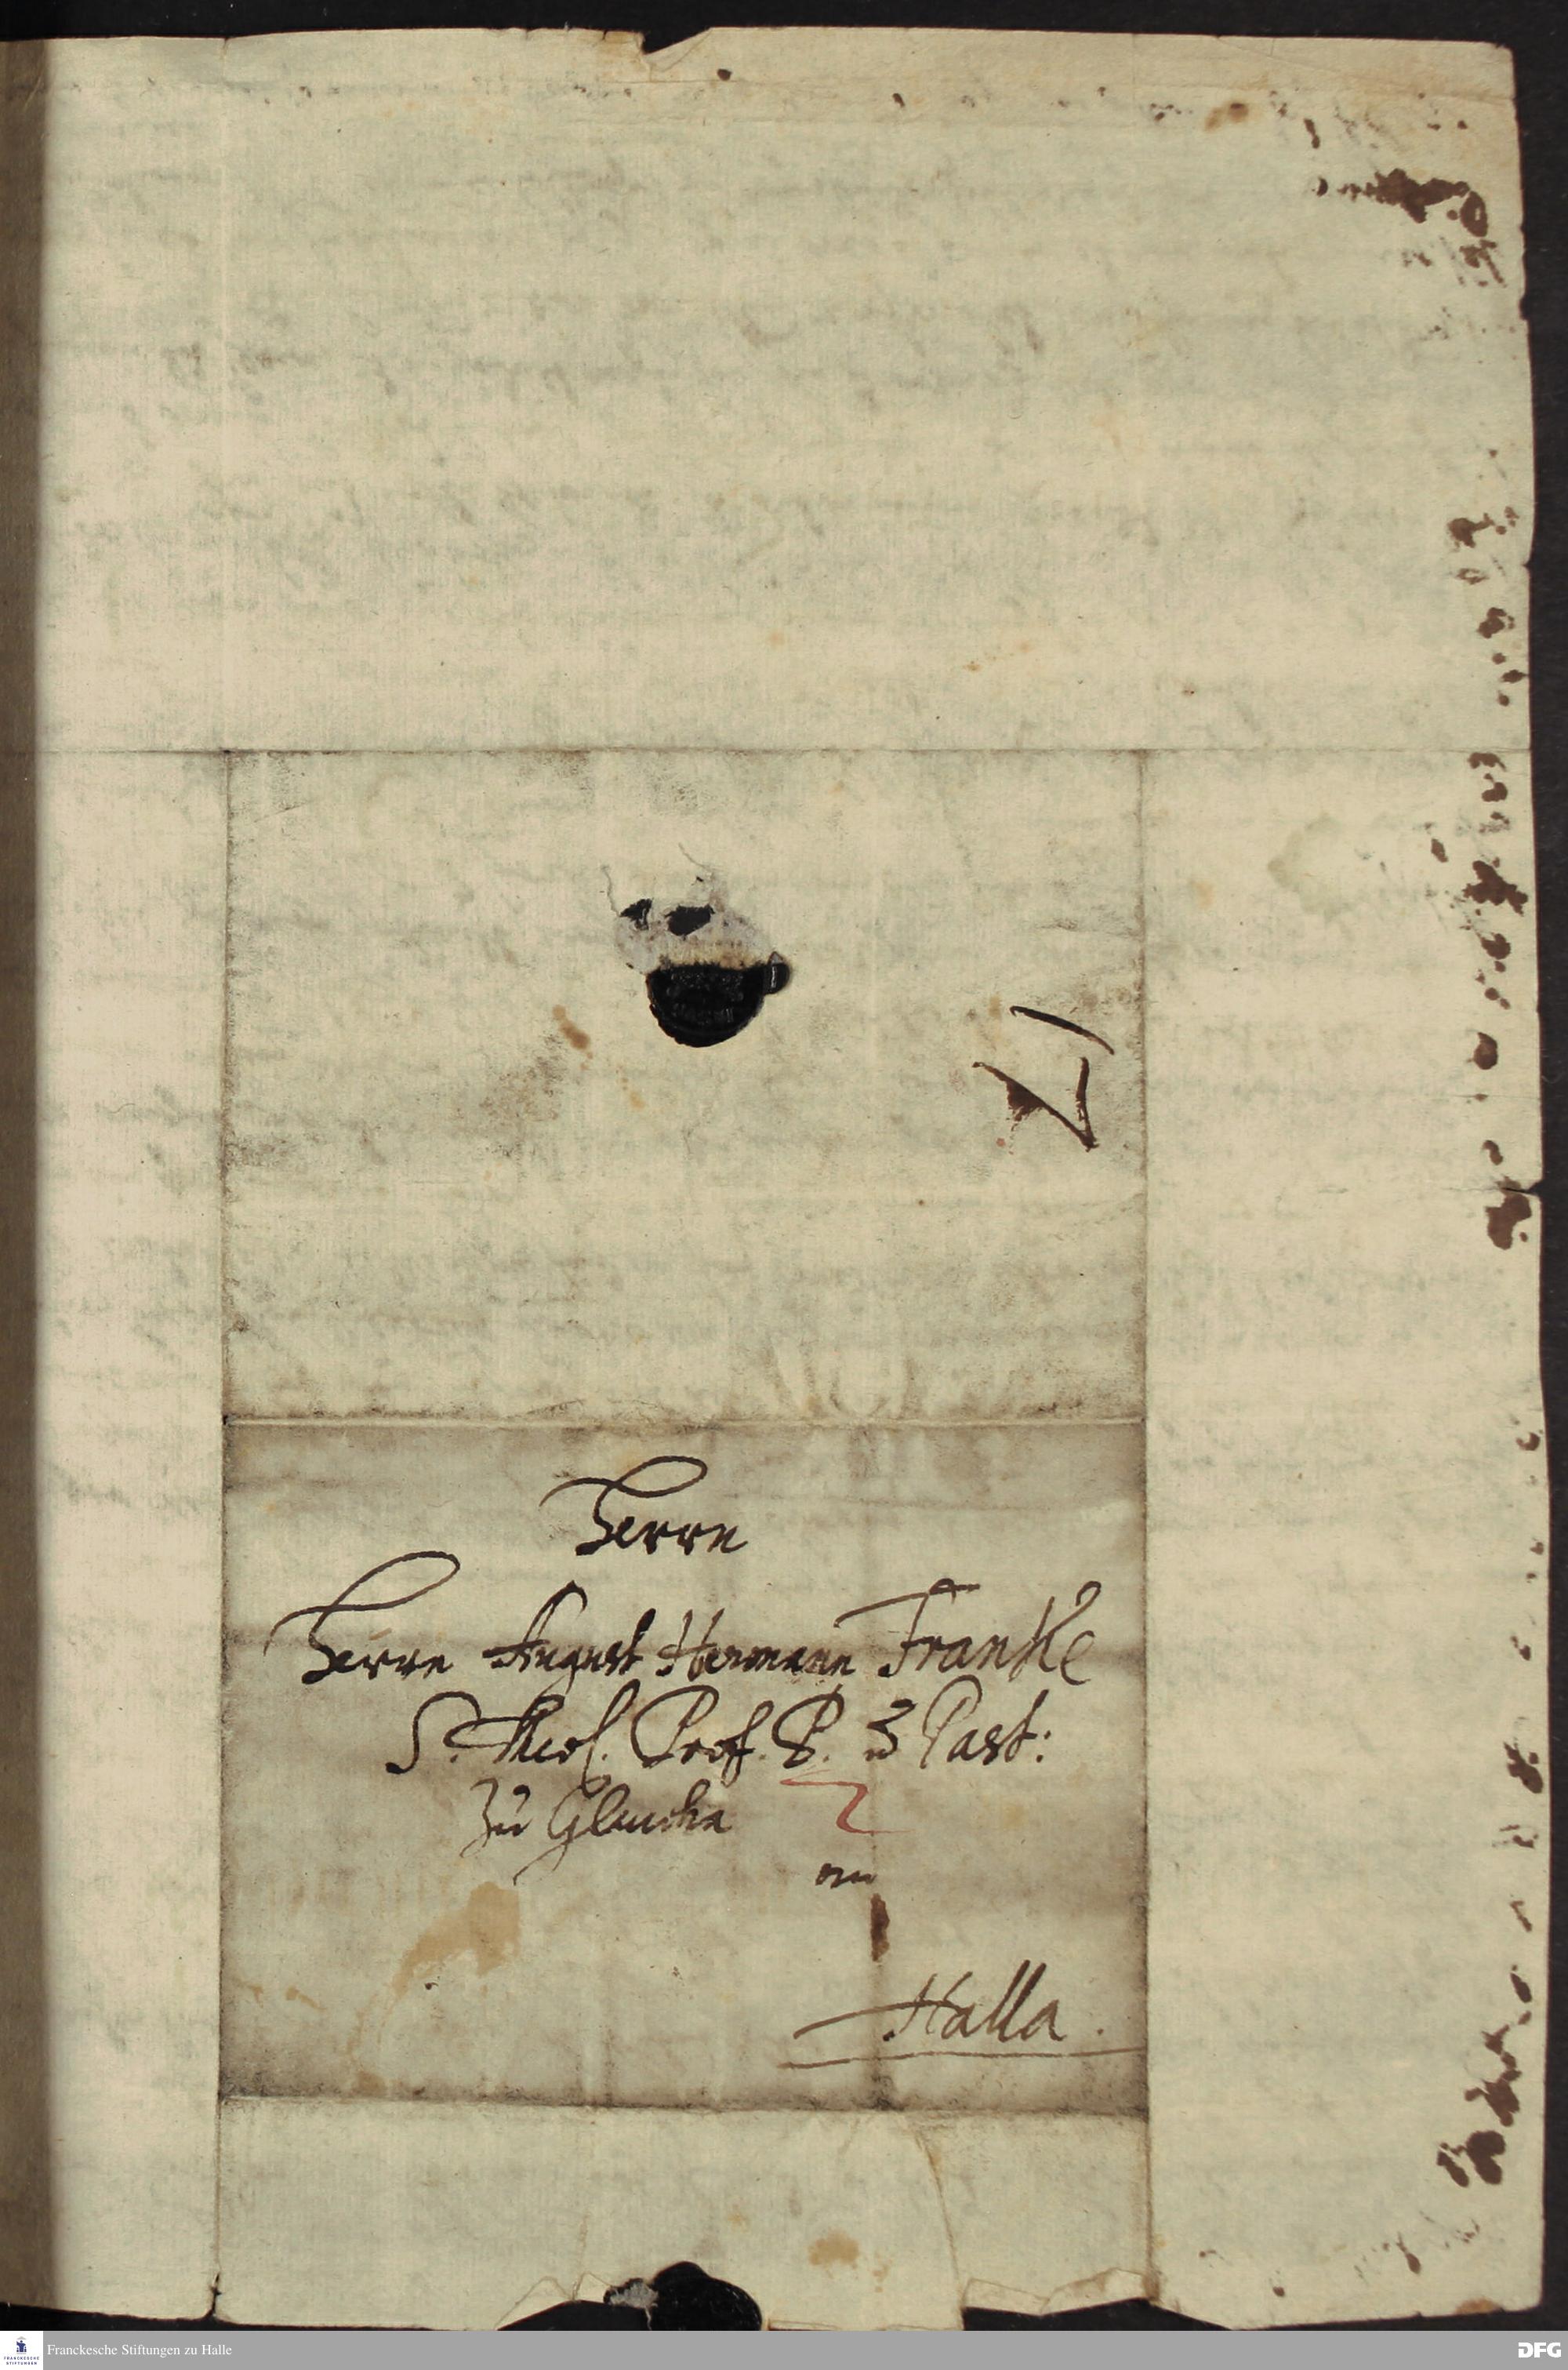 Herrn
Herrn August Hermann Franke
S. Theol. Prof. P. u Past:
Zu Glaucha
an
Halla.
Franckesche Stiftungen zu Halle
FRANCKESCHE STIFTUNGEN
DFG